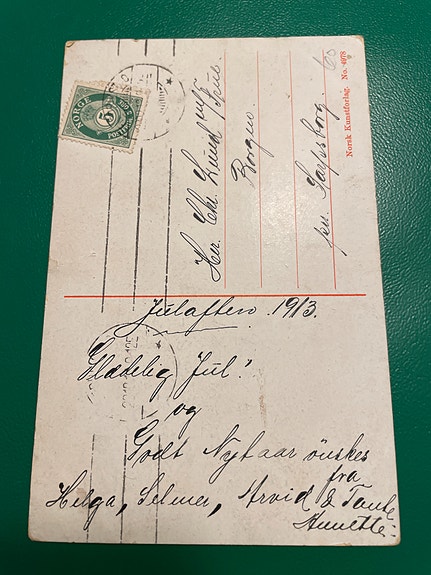 NORGE
5
POSTFRIM
Hr. Chr. Lund m/f
Borgen
pr. Sarpsborg.
60
Norsk Kunstforlag. No. 4978
Julaften. 1913.
Glædelig Jul!
og
Godt Nytaar ønskes
fra
Helga, Selmer, Arvid & Tante
Annette.